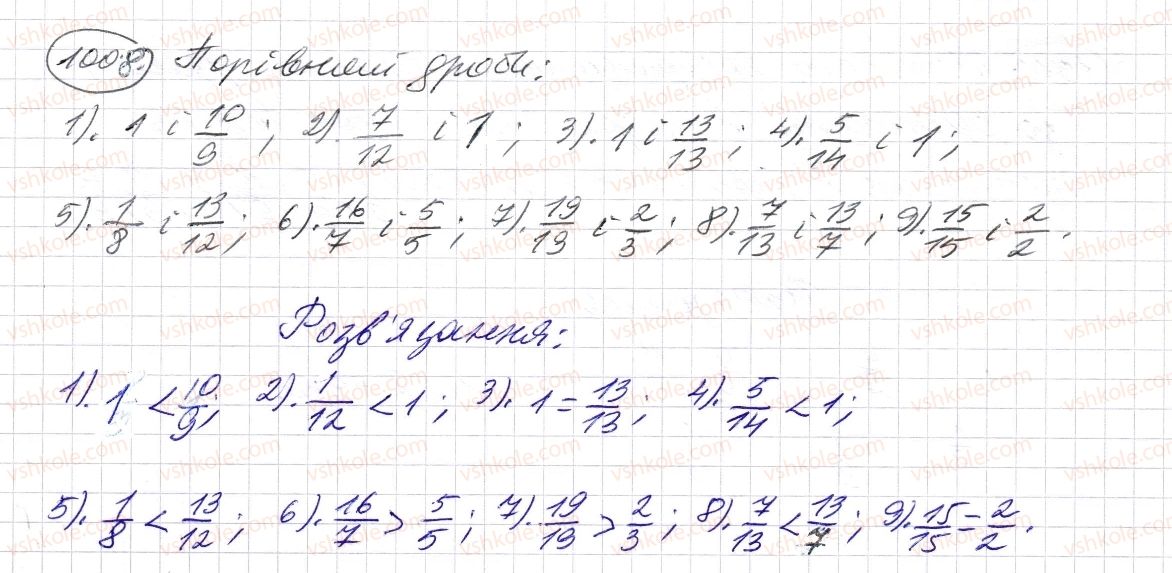 1008. Порівняй дроби:
1). 1 і 10/9 ; 2). 7/12 і 1 ; 3). 1 і 13/13 ; 4). 5/14 і 1 ;
5). 1/8 і 13/12 ; 6). 16/7 і 5/5 ; 7). 19/13 і 2/3 ; 8). 7/13 і 13/7 ; 9). 15/15 і 2/2 .
Розв'язання:
1). 1 < 10/9 ; 2). 1/12 < 1 ; 3). 1 = 13/13 ; 4). 5/14 < 1 ;
5). 1/8 < 13/12 ; 6). 16/7 > 5/5 ; 7). 19/13 > 2/3 ; 8). 7/13 < 13/7 ; 9). 15/15 = 2/2 .